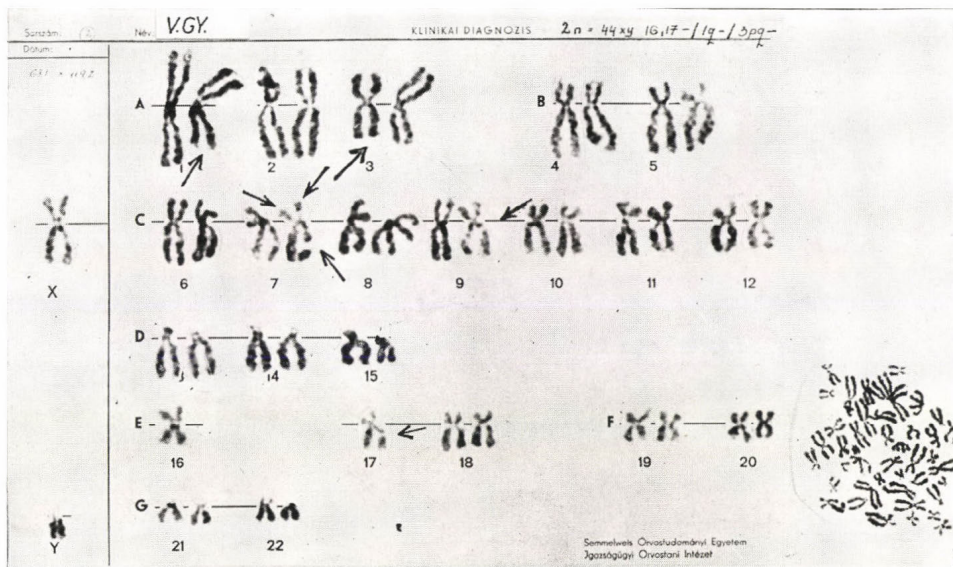 Sorszám: (2) Név: V.GY. KLINIKAI DIAGNOZIS 2n = 44xy 16,17-/1q-/3pq-
Dátum:
A 1 2 3 B 4 5
X C 6 7 8 9 10 11 12
D 13 14 15
E 16 17 18 F 19 20
Y G 21 22
Semmelweis Orvostudományi Egyetem
Igazságügyi Orvostani Intézet